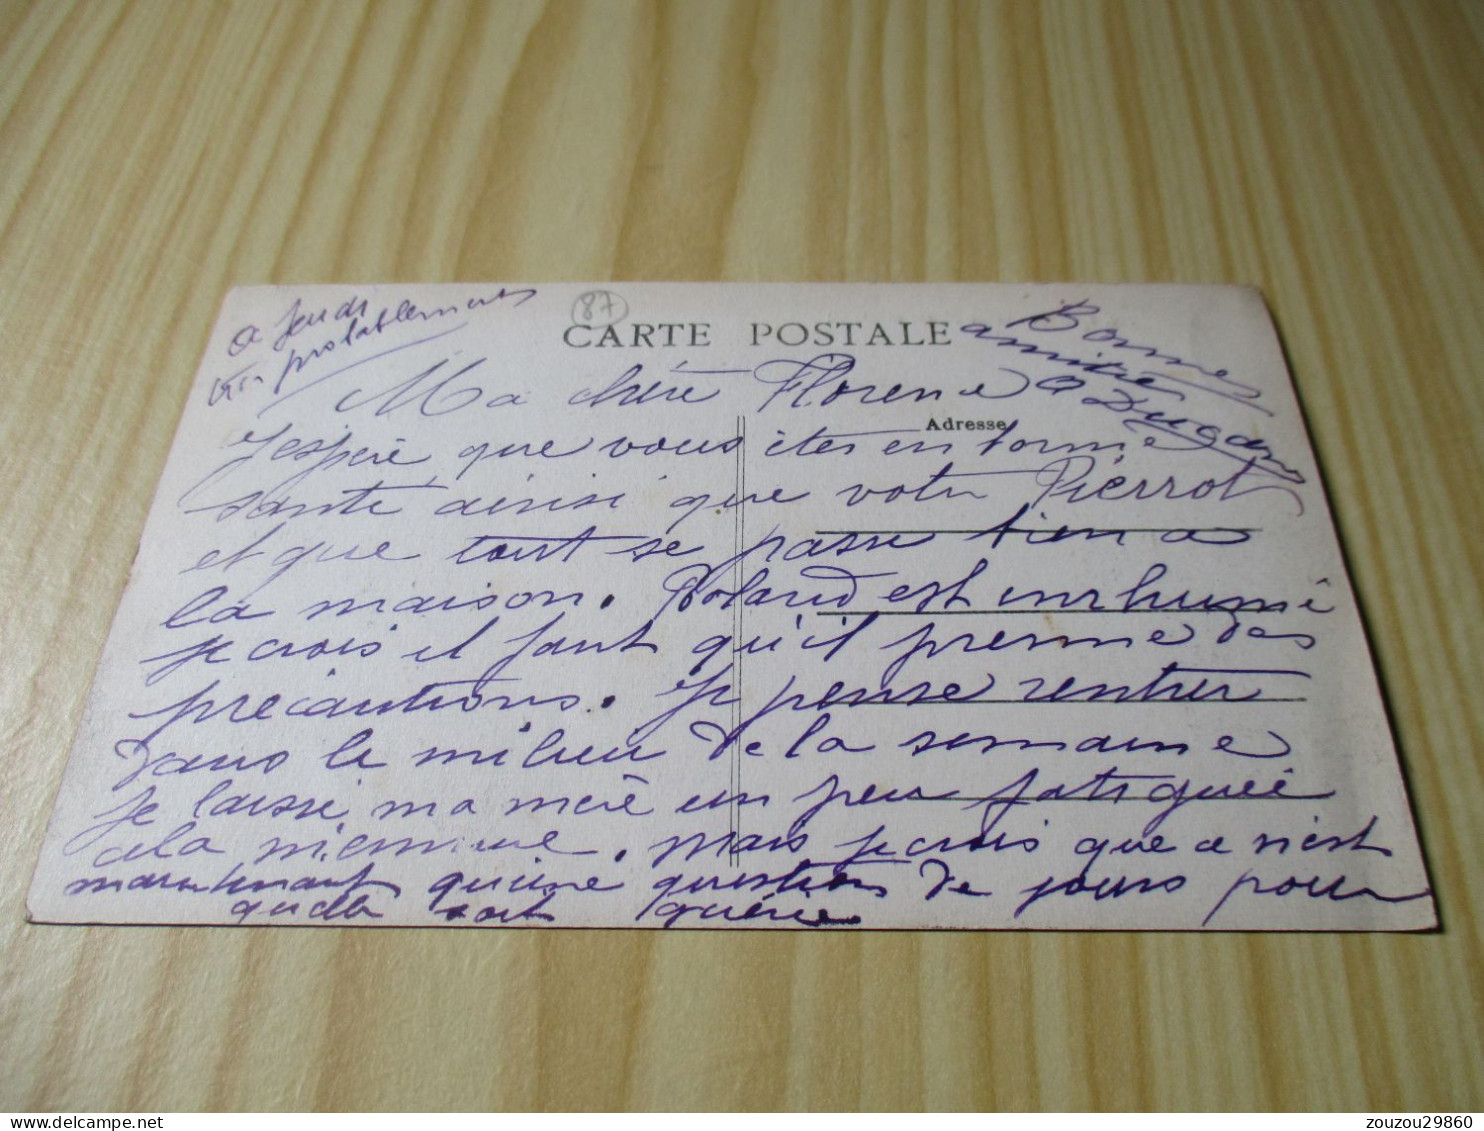 a jeudi
probablement
87
CARTE POSTALE
Bonnes
amitiés
a Dugan
Ma chère Florence
Adresse
J'espère que vous êtes en bonne
santé ainsi que votre Pierrot
et que tout se passe bien a
la maison. Roland est enrhumé
je crois il faut qu'il prenne des
précautions. Je pense rentrer
dans le milieu de la semaine
je laisse ma mère un peu fatiguée
mais je crois que ce n'est
maintenant qu'une question de jours pour
qu'elle soit guérie
zouzou29860